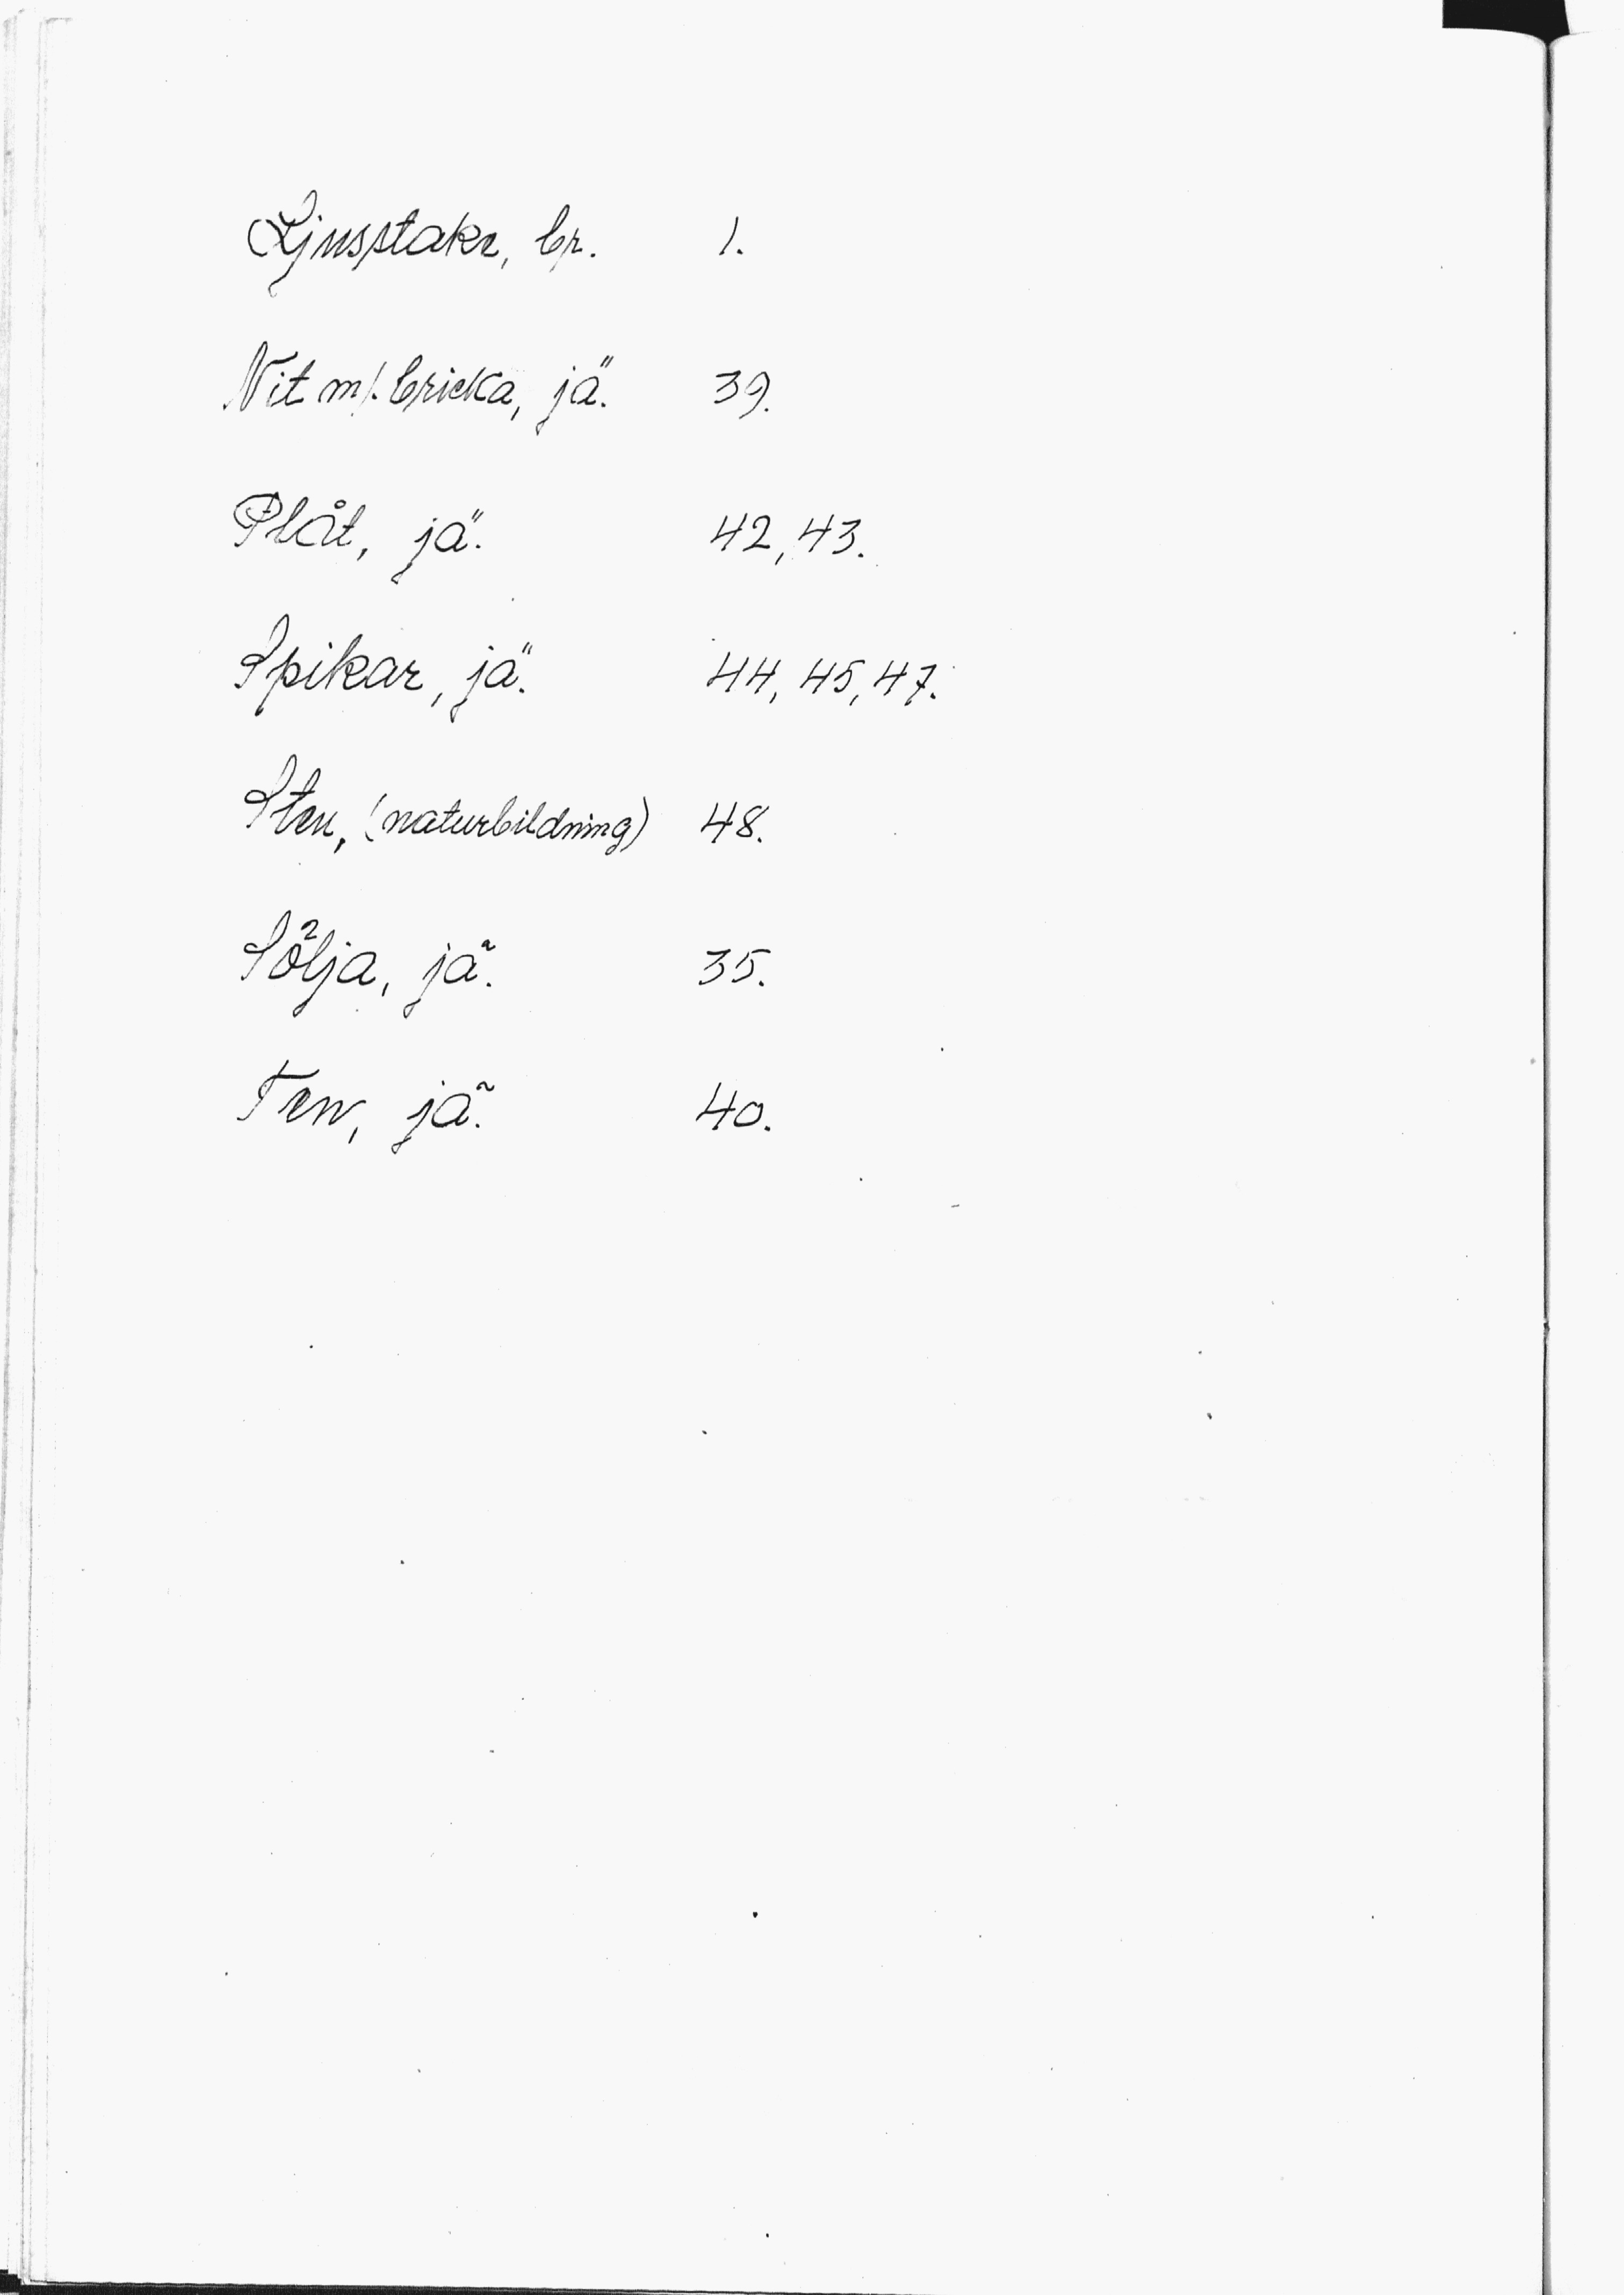 Ljusstake, br. 1.
Nit m/. bricka, jä. 39.
Plåt, jä. 42, 43.
Spikar, jä. 44, 45, 47.
Sten, (naturbildning) 48.
Sölja, jä. 35.
Ten, jä. 40.